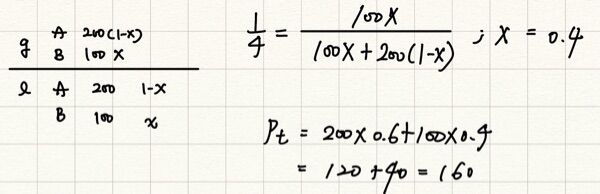 g A 200(1-x)
B 100 x
l A 200 1-x
B 100 x
1/4 = 100X / 100X + 200(1-X) ; X = 0.4
Pt = 200 x 0.6 + 100 x 0.4
= 120 + 40 = 160